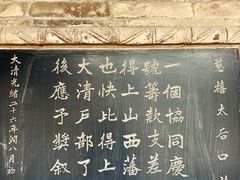 慈禧太后口
一個協同慶
號籌款支差
得上山西藩
也快比得上
大清戶部了
後應予獎叙
大清光緒二十六年閏八月